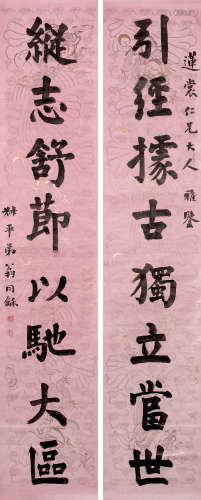 蓮裳仁兄大人雅鑒
引經據古獨立當世
縱志舒節以馳大區
叔平弟翁同龢